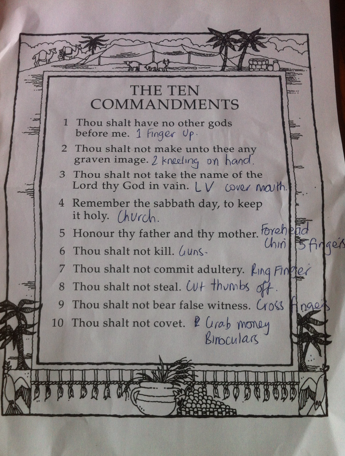 THE TEN
COMMANDMENTS
1 Thou shalt have no other gods
before me. 1 Finger Up.
2 Thou shalt not make unto thee any
graven image. 2 kneeling on hand.
3 Thou shalt not take the name of the
Lord thy God in vain. LV cover mouth.
4 Remember the sabbath day, to keep
it holy. Church.
5 Honour thy father and thy mother. Forehead
Chin 5 fingers
6 Thou shalt not kill. Guns.
7 Thou shalt not commit adultery. Ring Finger
8 Thou shalt not steal. Cut thumbs off.
9 Thou shalt not bear false witness. Cross fingers
10 Thou shalt not covet. Grab money
Binoculars